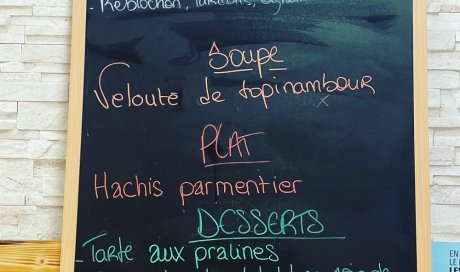 - Reblochon, lardons, oignons
Soupe
Velouté de topinambour
PLAT
Hachis parmentier
DESSERTS
- Tarte aux pralines
EN